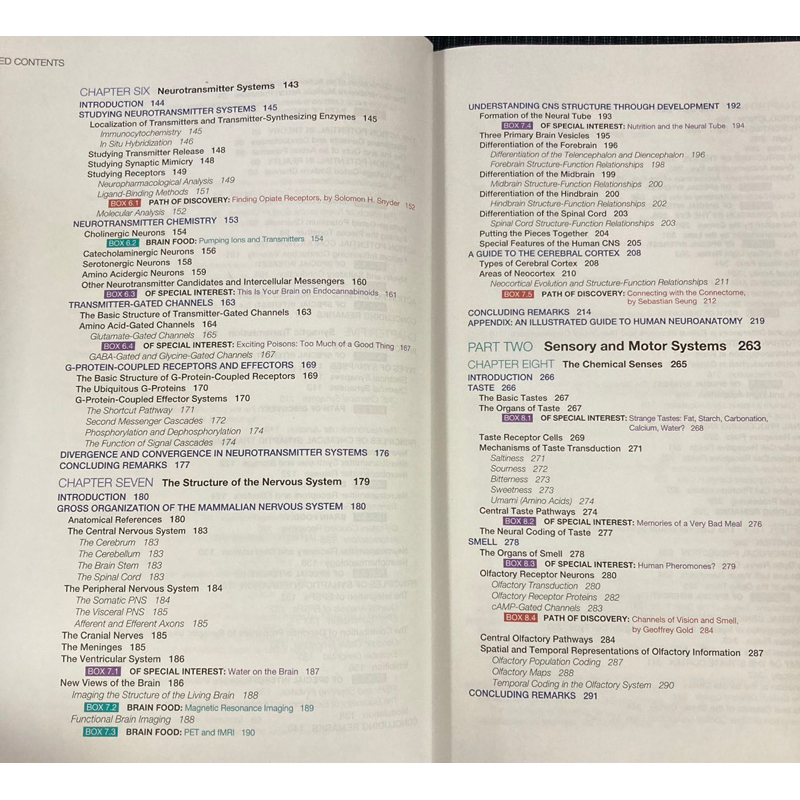 ED CONTENTS
CHAPTER SIX Neurotransmitter Systems 143
INTRODUCTION 144
STUDYING NEUROTRANSMITTER SYSTEMS 145
Localization of Transmitters and Transmitter-Synthesizing Enzymes 145
Immunocytochemistry 145
In Situ Hybridization 146
Studying Transmitter Release 148
Studying Synaptic Mimicry 148
Studying Receptors 149
Neuropharmacological Analysis 149
Ligand-Binding Methods 151
BOX 6.1 PATH OF DISCOVERY: Finding Opiate Receptors, by Solomon H. Snyder 152
Molecular Analysis 152
NEUROTRANSMITTER CHEMISTRY 153
Cholinergic Neurons 154
BOX 6.2 BRAIN FOOD: Pumping Ions and Transmitters 154
Catecholaminergic Neurons 156
Serotonergic Neurons 158
Amino Acidergic Neurons 159
Other Neurotransmitter Candidates and Intercellular Messengers 160
BOX 6.3 OF SPECIAL INTEREST: This Is Your Brain on Endocannabinoids 161
TRANSMITTER-GATED CHANNELS 163
The Basic Structure of Transmitter-Gated Channels 163
Amino Acid-Gated Channels 164
Glutamate-Gated Channels 165
BOX 6.4 OF SPECIAL INTEREST: Exciting Poisons: Too Much of a Good Thing 167
GABA-Gated and Glycine-Gated Channels 167
G-PROTEIN-COUPLED RECEPTORS AND EFFECTORS 169
The Basic Structure of G-Protein-Coupled Receptors 169
The Ubiquitous G-Proteins 170
G-Protein-Coupled Effector Systems 170
The Shortcut Pathway 171
Second Messenger Cascades 172
Phosphorylation and Dephosphorylation 174
The Function of Signal Cascades 174
DIVERGENCE AND CONVERGENCE IN NEUROTRANSMITTER SYSTEMS 176
CONCLUDING REMARKS 177
CHAPTER SEVEN The Structure of the Nervous System 179
INTRODUCTION 180
GROSS ORGANIZATION OF THE MAMMALIAN NERVOUS SYSTEM 180
Anatomical References 180
The Central Nervous System 183
The Cerebrum 183
The Cerebellum 183
The Brain Stem 183
The Spinal Cord 183
The Peripheral Nervous System 184
The Somatic PNS 184
The Visceral PNS 185
Afferent and Efferent Axons 185
The Cranial Nerves 185
The Meninges 185
The Ventricular System 186
BOX 7.1 OF SPECIAL INTEREST: Water on the Brain 187
New Views of the Brain 186
Imaging the Structure of the Living Brain 188
BOX 7.2 BRAIN FOOD: Magnetic Resonance Imaging 189
Functional Brain Imaging 188
BOX 7.3 BRAIN FOOD: PET and fMRI 190
UNDERSTANDING CNS STRUCTURE THROUGH DEVELOPMENT 192
Formation of the Neural Tube 193
BOX 7.4 OF SPECIAL INTEREST: Nutrition and the Neural Tube 194
Three Primary Brain Vesicles 195
Differentiation of the Forebrain 196
Differentiation of the Telencephalon and Diencephalon 196
Forebrain Structure-Function Relationships 198
Differentiation of the Midbrain 199
Midbrain Structure-Function Relationships 200
Differentiation of the Hindbrain 200
Hindbrain Structure-Function Relationships 202
Differentiation of the Spinal Cord 203
Spinal Cord Structure-Function Relationships 203
Putting the Pieces Together 204
Special Features of the Human CNS 205
A GUIDE TO THE CEREBRAL CORTEX 208
Types of Cerebral Cortex 208
Areas of Neocortex 210
Neocortical Evolution and Structure-Function Relationships 211
BOX 7.5 PATH OF DISCOVERY: Connecting with the Connectome,
by Sebastian Seung 212
CONCLUDING REMARKS 214
APPENDIX: AN ILLUSTRATED GUIDE TO HUMAN NEUROANATOMY 219
PART TWO Sensory and Motor Systems 263
CHAPTER EIGHT The Chemical Senses 265
INTRODUCTION 266
TASTE 266
The Basic Tastes 267
The Organs of Taste 267
BOX 8.1 OF SPECIAL INTEREST: Strange Tastes: Fat, Starch, Carbonation,
Calcium, Water? 268
Taste Receptor Cells 269
Mechanisms of Taste Transduction 271
Saltiness 271
Sourness 272
Bitterness 273
Sweetness 273
Umami (Amino Acids) 274
Central Taste Pathways 274
BOX 8.2 OF SPECIAL INTEREST: Memories of a Very Bad Meal 276
The Neural Coding of Taste 277
SMELL 278
The Organs of Smell 278
BOX 8.3 OF SPECIAL INTEREST: Human Pheromones? 279
Olfactory Receptor Neurons 280
Olfactory Transduction 280
Olfactory Receptor Proteins 282
cAMP-Gated Channels 283
BOX 8.4 PATH OF DISCOVERY: Channels of Vision and Smell,
by Geoffrey Gold 284
Central Olfactory Pathways 284
Spatial and Temporal Representations of Olfactory Information 287
Olfactory Population Coding 287
Olfactory Maps 288
Temporal Coding in the Olfactory System 290
CONCLUDING REMARKS 291